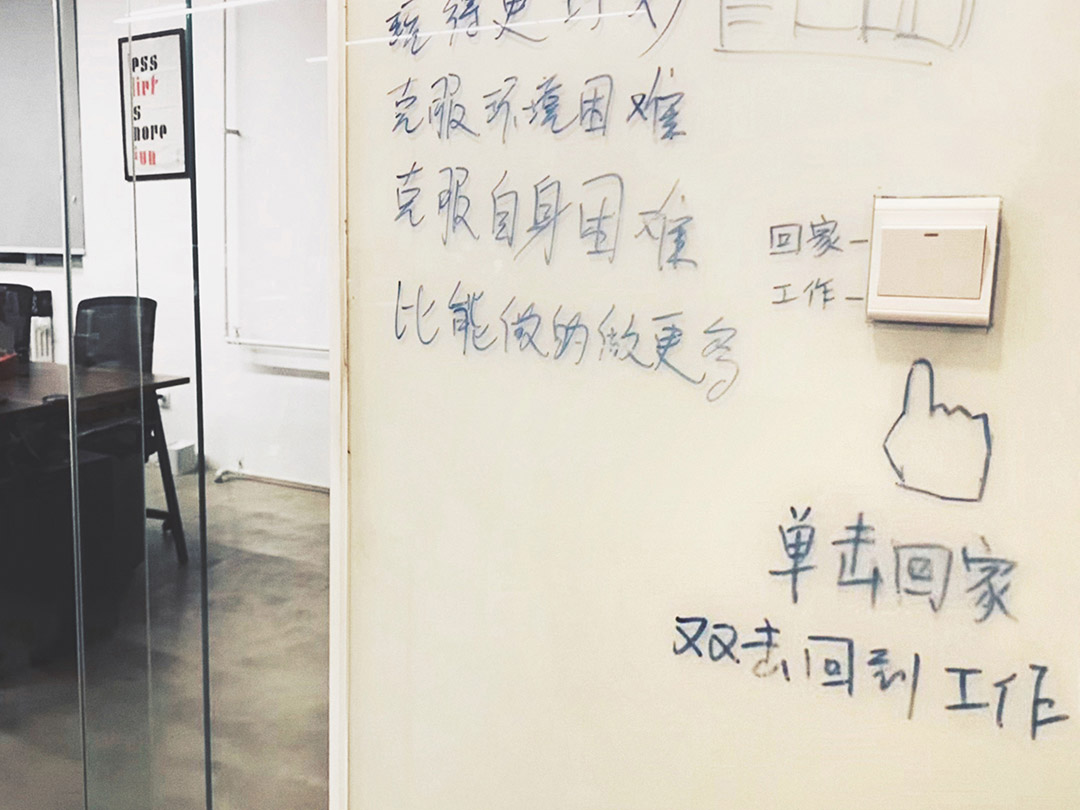 ess
dirt
s
more
fun
得更
克服环境困难
克服自身困难
比能做的做更多
回家
工作
单击回家
双击回到工作